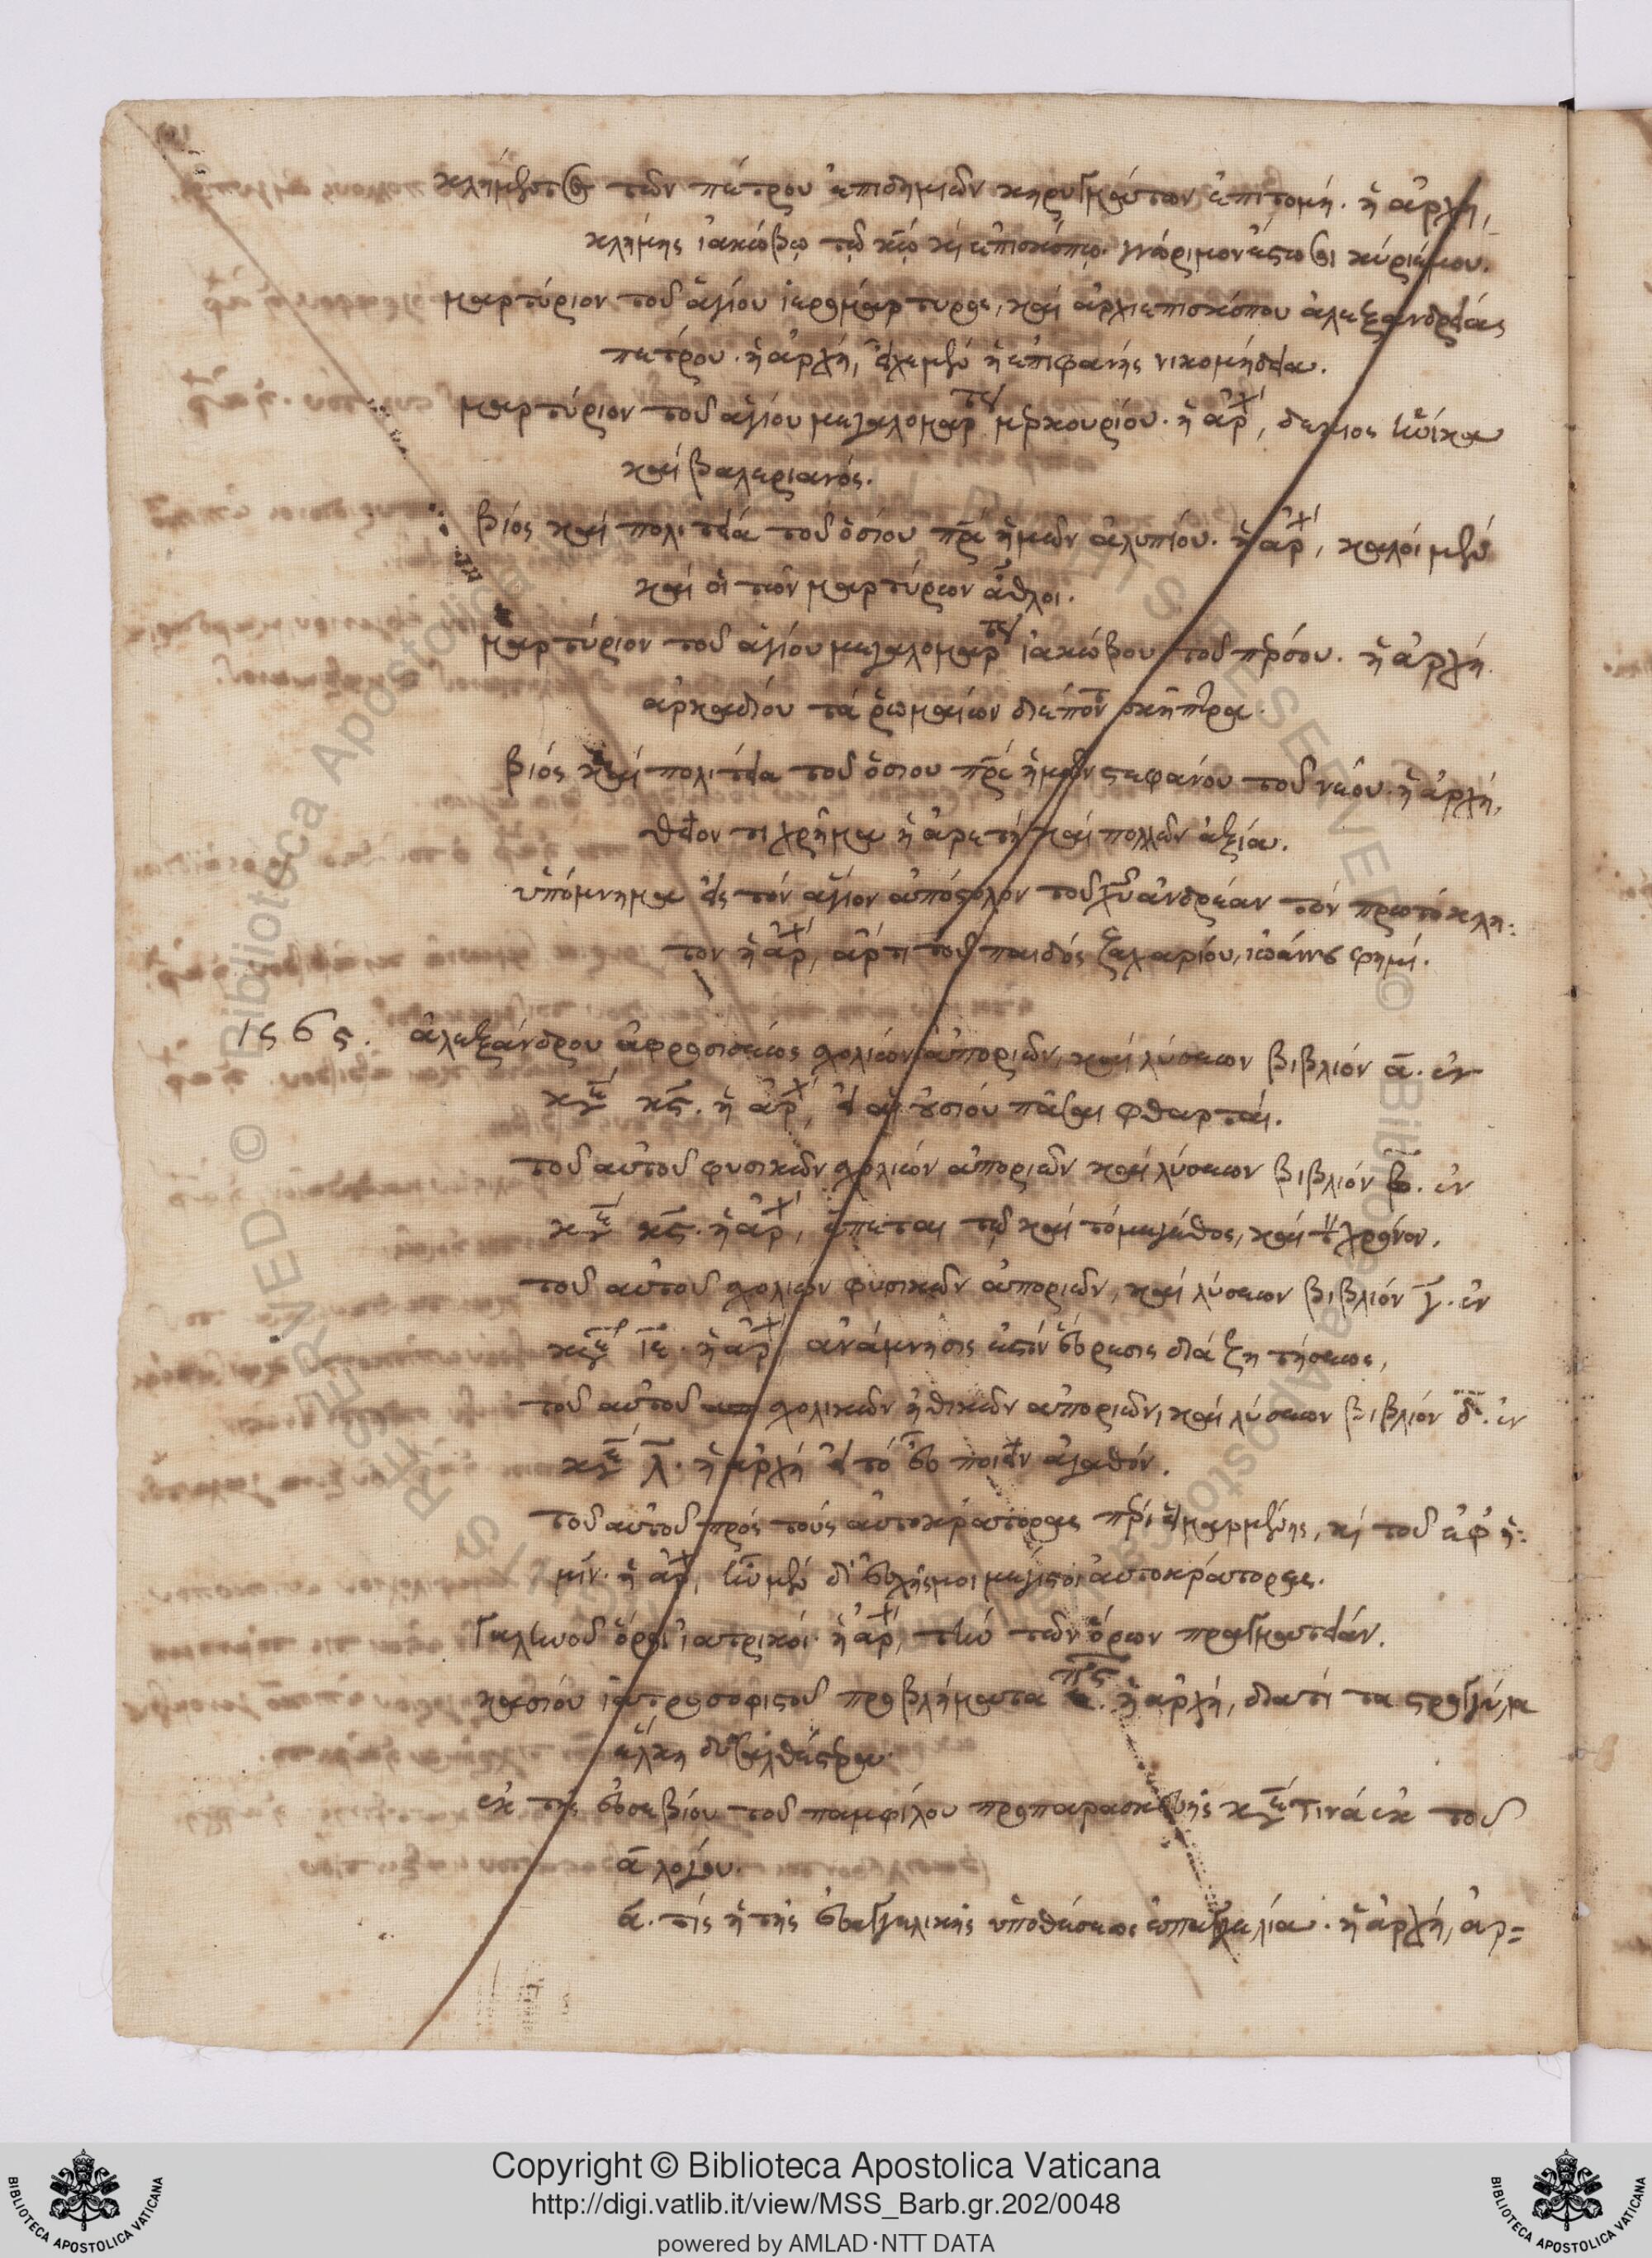 κλήμεντος τῶν πέτρου ἐπιδημιῶν κηρυγμάτων ἐπιτομή. ἡ ἀρχή,
κλήμης ἰακώβῳ τῷ κῷ κὶ ἐπισκόπῳ. γνώριμον ἔστω σοι κύριέ μου.
μαρτύριον τοῦ ἁγίου ἱερομάρτυρος, καὶ ἀρχιεπισκόπου ἀλεξανδρείας
πέτρου. ἡ ἀρχή, εἶχε μὲν ἡ ἐπιφανής νικομήδεια.
μαρτύριον τοῦ ἁγίου μεγαλομάρτυ μερκουρίου. ἡ ἀρχ, δέκιος ἡνίκα
καὶ βαλεριανός.
βίος καὶ πολιτεία τοῦ ὁσίου πρς ἡμῶν ἀλυπίου. ἡ ἀρχ, καλοὶ μὲν
καὶ οἱ τῶν μαρτύρων ἆθλοι.
μαρτύριον τοῦ ἁγίου μεγαλομάρτυ ἰακώβου τοῦ πέρσου. ἡ ἀρχή
ἀρκαδίου τὰ ῥωμαίων διέποντ σκῆπτρα.
βίος καὶ πολιτεία τοῦ ὁσίου πρς ἡμῶν στεφάνου τοῦ νέου. ἡ ἀρχή,
θεῖόν τι χρῆμα ἡ ἀρετὴ καὶ πολλῶν ἀξία.
ὑπόμνημα εἰς τὸν ἅγιον ἀπόστολον τοῦ χυ ἀνδρέαν τὸν πρωτόκλη:
τον ἡ ἀρχ, ἄρτι τοῦ παιδός ζαχαρίου, ἰωάννης φημί.
1565. ἀλεξάνδρου ἀφροδισιέως σχολικῶν ἀποριῶν, καὶ λύσεων βιβλίον α. ἐν
κε κς. ἡ ἀρχ, εἰ αἱ πᾶσαι φθαρταί.
τοῦ αὐτοῦ φυσικῶν σχολικῶν ἀποριῶν καὶ λύσεων βιβλίον β. ἐν
κε κς. ἡ ἀρχ, ἕπεται τῷ κατὰ τὸ μέγεθος, καὶ τὸν χρόνον.
τοῦ αὐτοῦ σχολικῶν φυσικῶν ἀποριῶν, καὶ λύσεων βιβλίον γ. ἐν
κε ιε. ἡ ἀρχ, ἀνάμνησις ἐστὶν εὕρεσις διὰ ζητήσεως,
τοῦ αὐτοῦ σχολικῶν ἠθικῶν ἀποριῶν, καὶ λύσεων βιβλίον δ. ἐν
κε λ. ἡ ἀρχή εἰ τὸ εὖ ποιεῖν ἀγαθόν.
τοῦ αὐτοῦ πρὸς τοὺς αὐτοκράτορας περὶ εἱμαρμένης, κὶ τοῦ ἐφ ἡ:
μῖν. ἡ ἀρχ, ἦν μὲν δι εὐχῆς μοι μέγιστοι αὐτοκράτορες.
Γαληνοῦ ὅροι ἰατρικοί. ἡ ἀρχ, τὴν τῶν ὅρων πραγματείαν.
κασίου ἰατροσοφιστοῦ προβλήματα πς. ἡ ἀρχή, διατί τὰ στρογγύλα
ἕλκη δυσαλθέστερα.
ἐκ τῆς εὐσεβίου τοῦ παμφίλου προπαρασκευῆς κε τινὰ ἐκ τοῦ
α λόγου.
α. τίς ἡ τῆς εὐαγγελικῆς ὑποθέσεως ἐπαγγελία. ἡ ἀρχή, ἀρ=
Copyright © Biblioteca Apostolica Vaticana
http://digi.vatlib.it/view/MSS_Barb.gr.202/0048
powered by AMLAD·NTT DATA